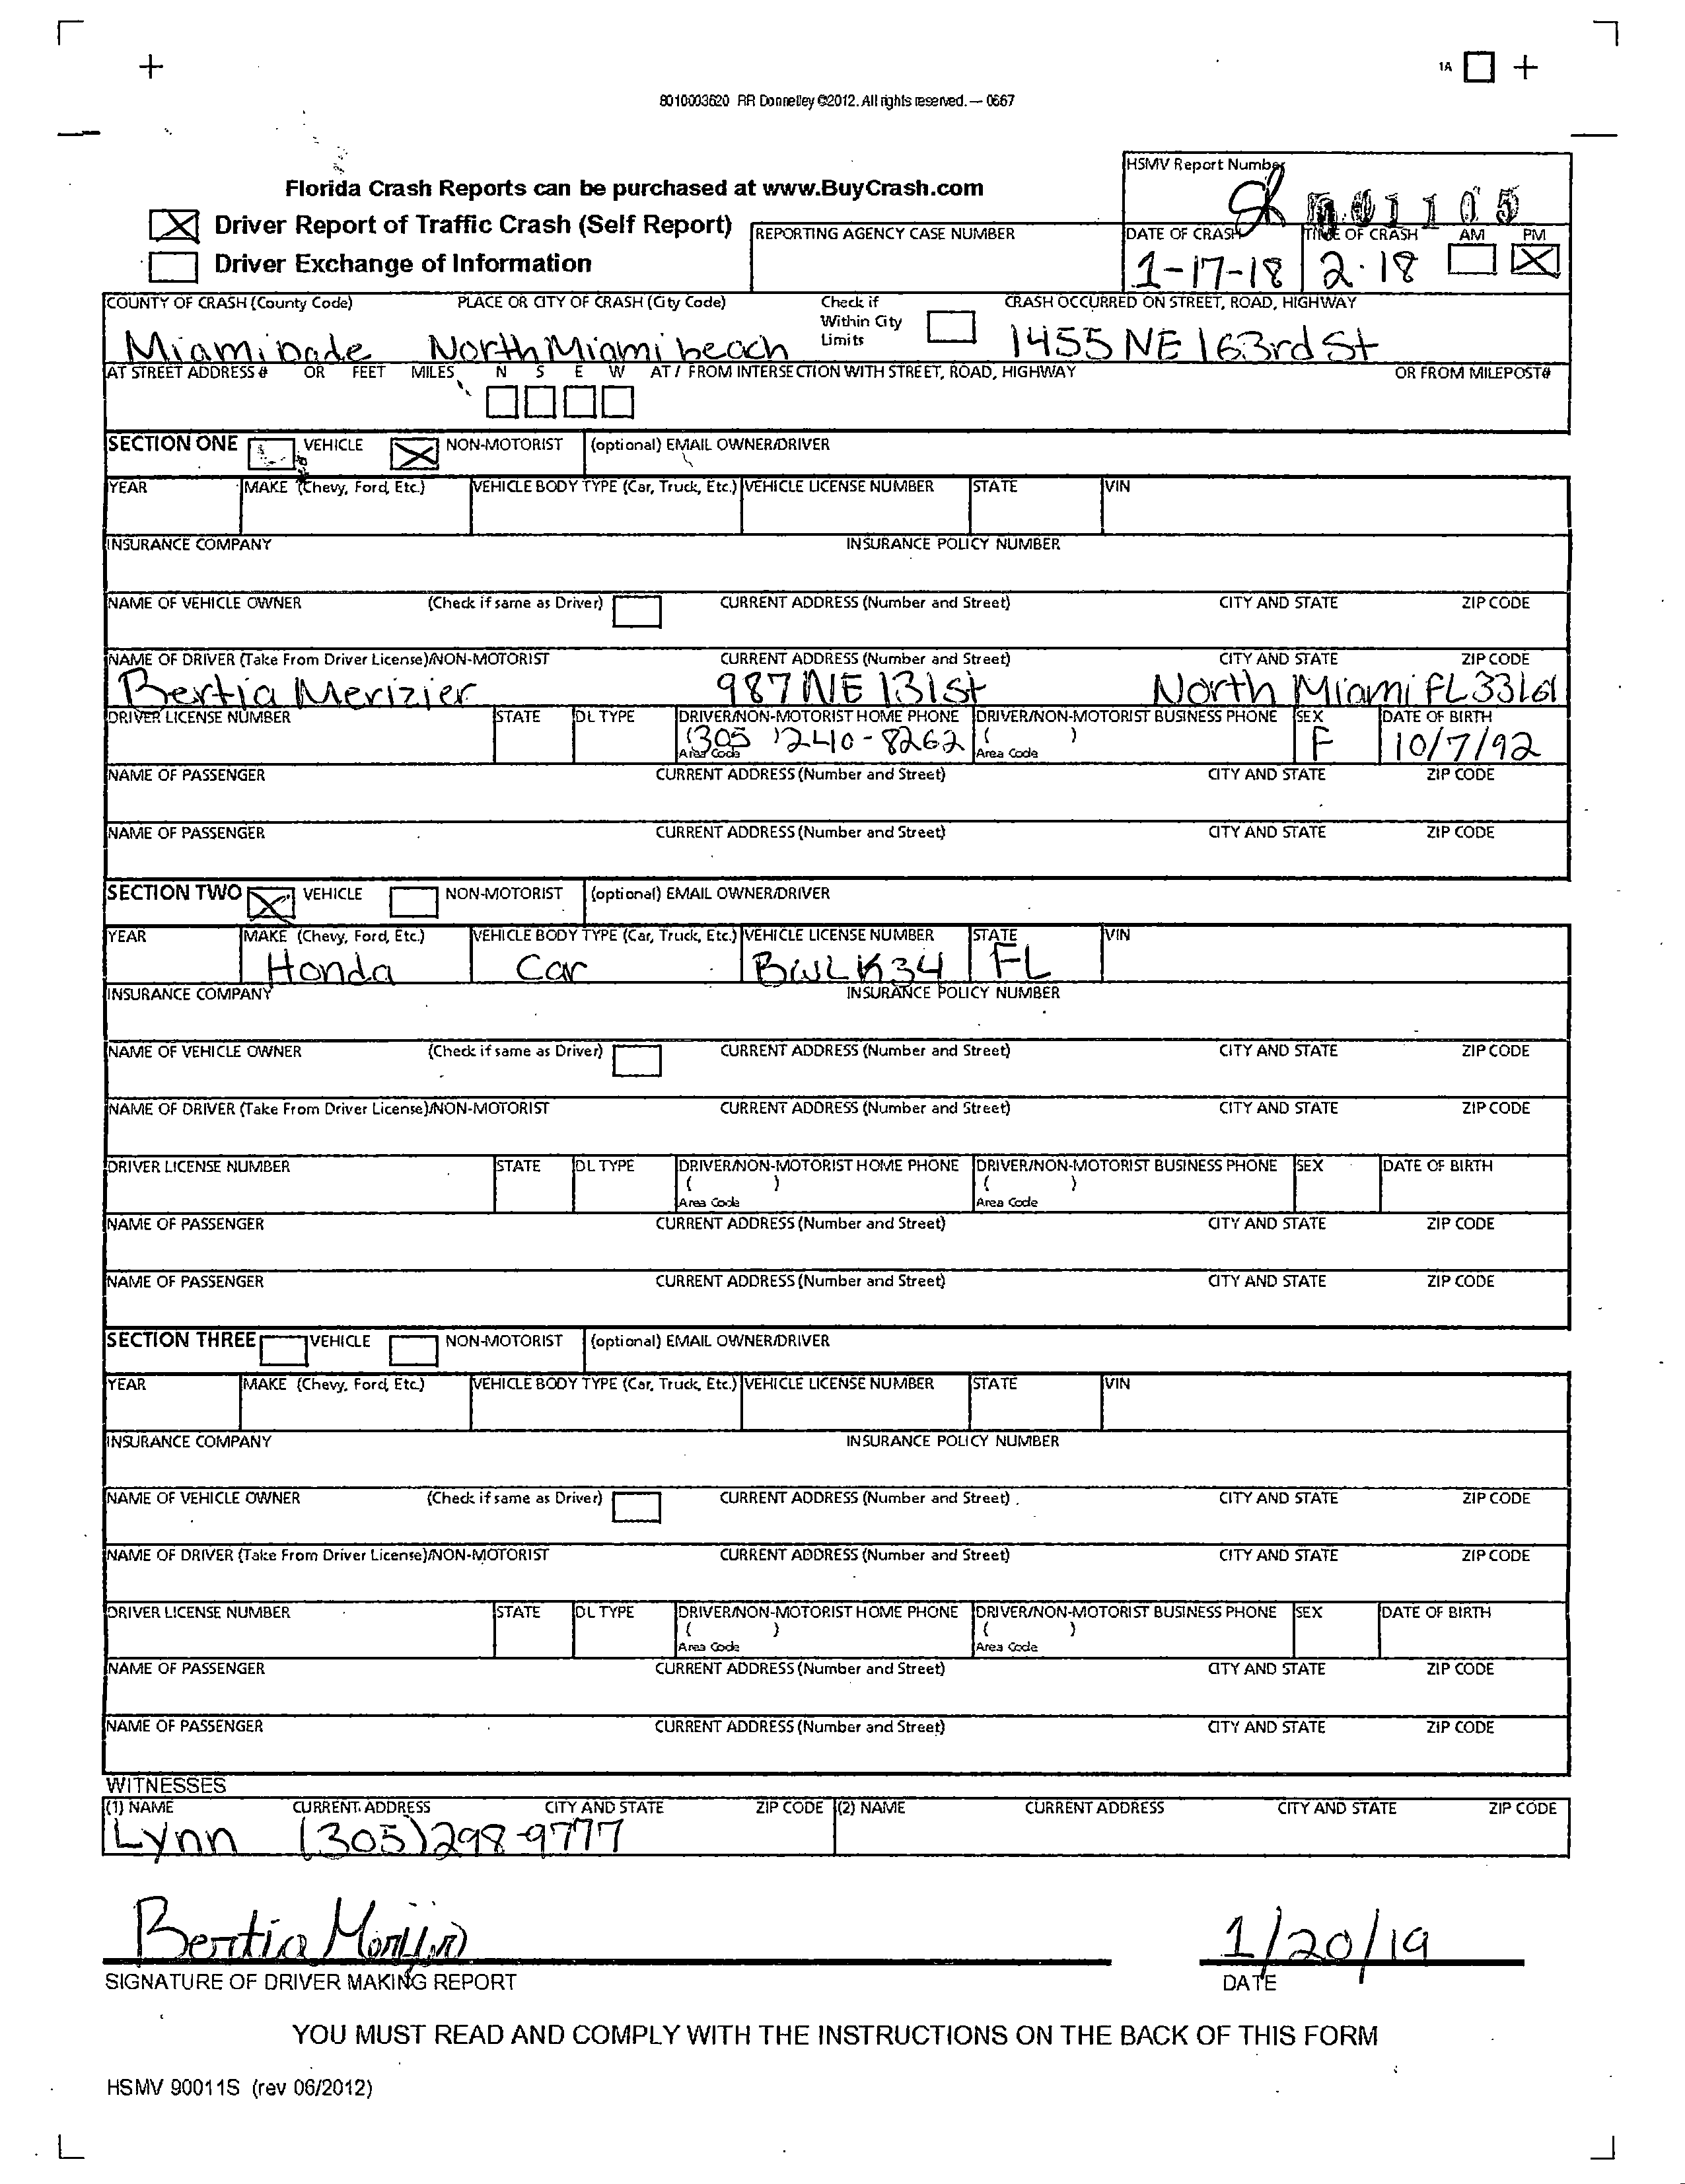 1A
8010003620 RR Donnelley ©2012. All rights reserved. — 0667
HSMV Report Number
Florida Crash Reports can be purchased at www.BuyCrash.com
Driver Report of Traffic Crash (Self Report)
REPORTING AGENCY CASE NUMBER
DATE OF CRASH TIME OF CRASH AM PM
Driver Exchange of Information
1-17-18 2.18
COUNTY OF CRASH (County Code) PLACE OR CITY OF CRASH (City Code) Check if Within City Limits CRASH OCCURRED ON STREET, ROAD, HIGHWAY
Miami Dade North Miami beach 1455 NE 163rd St
AT STREET ADDRESS # OR FEET MILES N S E W AT / FROM INTERSECTION WITH STREET, ROAD, HIGHWAY OR FROM MILEPOST#
SECTION ONE VEHICLE NON-MOTORIST (optional) EMAIL OWNER/DRIVER
YEAR MAKE (Chevy, Ford, Etc.) VEHICLE BODY TYPE (Car, Truck, Etc.) VEHICLE LICENSE NUMBER STATE VIN
INSURANCE COMPANY INSURANCE POLICY NUMBER
NAME OF VEHICLE OWNER (Check if same as Driver) CURRENT ADDRESS (Number and Street) CITY AND STATE ZIP CODE
NAME OF DRIVER (Take From Driver License)/NON-MOTORIST CURRENT ADDRESS (Number and Street) CITY AND STATE ZIP CODE
Bertia Merizier 987 NE 131st North Miami FL 33161
DRIVER LICENSE NUMBER STATE DL TYPE DRIVER/NON-MOTORIST HOME PHONE DRIVER/NON-MOTORIST BUSINESS PHONE SEX DATE OF BIRTH
(305 )240-8262 ( ) F 10/7/92
Area Code Area Code
NAME OF PASSENGER CURRENT ADDRESS (Number and Street) CITY AND STATE ZIP CODE
NAME OF PASSENGER CURRENT ADDRESS (Number and Street) CITY AND STATE ZIP CODE
SECTION TWO VEHICLE NON-MOTORIST (optional) EMAIL OWNER/DRIVER
YEAR MAKE (Chevy, Ford, Etc.) VEHICLE BODY TYPE (Car, Truck, Etc.) VEHICLE LICENSE NUMBER STATE VIN
Honda Car BWLK34 FL
INSURANCE COMPANY INSURANCE POLICY NUMBER
NAME OF VEHICLE OWNER (Check if same as Driver) CURRENT ADDRESS (Number and Street) CITY AND STATE ZIP CODE
NAME OF DRIVER (Take From Driver License)/NON-MOTORIST CURRENT ADDRESS (Number and Street) CITY AND STATE ZIP CODE
DRIVER LICENSE NUMBER STATE DL TYPE DRIVER/NON-MOTORIST HOME PHONE DRIVER/NON-MOTORIST BUSINESS PHONE SEX DATE OF BIRTH
( ) ( )
Area Code Area Code
NAME OF PASSENGER CURRENT ADDRESS (Number and Street) CITY AND STATE ZIP CODE
NAME OF PASSENGER CURRENT ADDRESS (Number and Street) CITY AND STATE ZIP CODE
SECTION THREE VEHICLE NON-MOTORIST (optional) EMAIL OWNER/DRIVER
YEAR MAKE (Chevy, Ford, Etc.) VEHICLE BODY TYPE (Car, Truck, Etc.) VEHICLE LICENSE NUMBER STATE VIN
INSURANCE COMPANY INSURANCE POLICY NUMBER
NAME OF VEHICLE OWNER (Check if same as Driver) CURRENT ADDRESS (Number and Street) CITY AND STATE ZIP CODE
NAME OF DRIVER (Take From Driver License)/NON-MOTORIST CURRENT ADDRESS (Number and Street) CITY AND STATE ZIP CODE
DRIVER LICENSE NUMBER STATE DL TYPE DRIVER/NON-MOTORIST HOME PHONE DRIVER/NON-MOTORIST BUSINESS PHONE SEX DATE OF BIRTH
( ) ( )
Area Code Area Code
NAME OF PASSENGER CURRENT ADDRESS (Number and Street) CITY AND STATE ZIP CODE
NAME OF PASSENGER CURRENT ADDRESS (Number and Street) CITY AND STATE ZIP CODE
WITNESSES
(1) NAME CURRENT ADDRESS CITY AND STATE ZIP CODE (2) NAME CURRENT ADDRESS CITY AND STATE ZIP CODE
Lynn (305)298-9777
Bertia 1/20/19
SIGNATURE OF DRIVER MAKING REPORT DATE
YOU MUST READ AND COMPLY WITH THE INSTRUCTIONS ON THE BACK OF THIS FORM
HSMV 90011S (rev 06/2012)